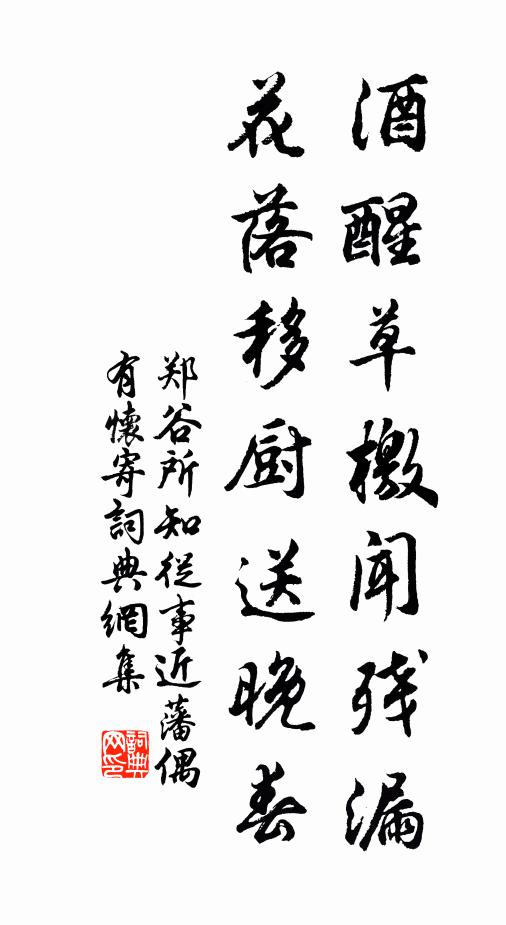 酒醒草檄闻残漏
花落移厨送晚春
郑谷所知从事近藩偶
有怀寄詞典網集
詞典网印